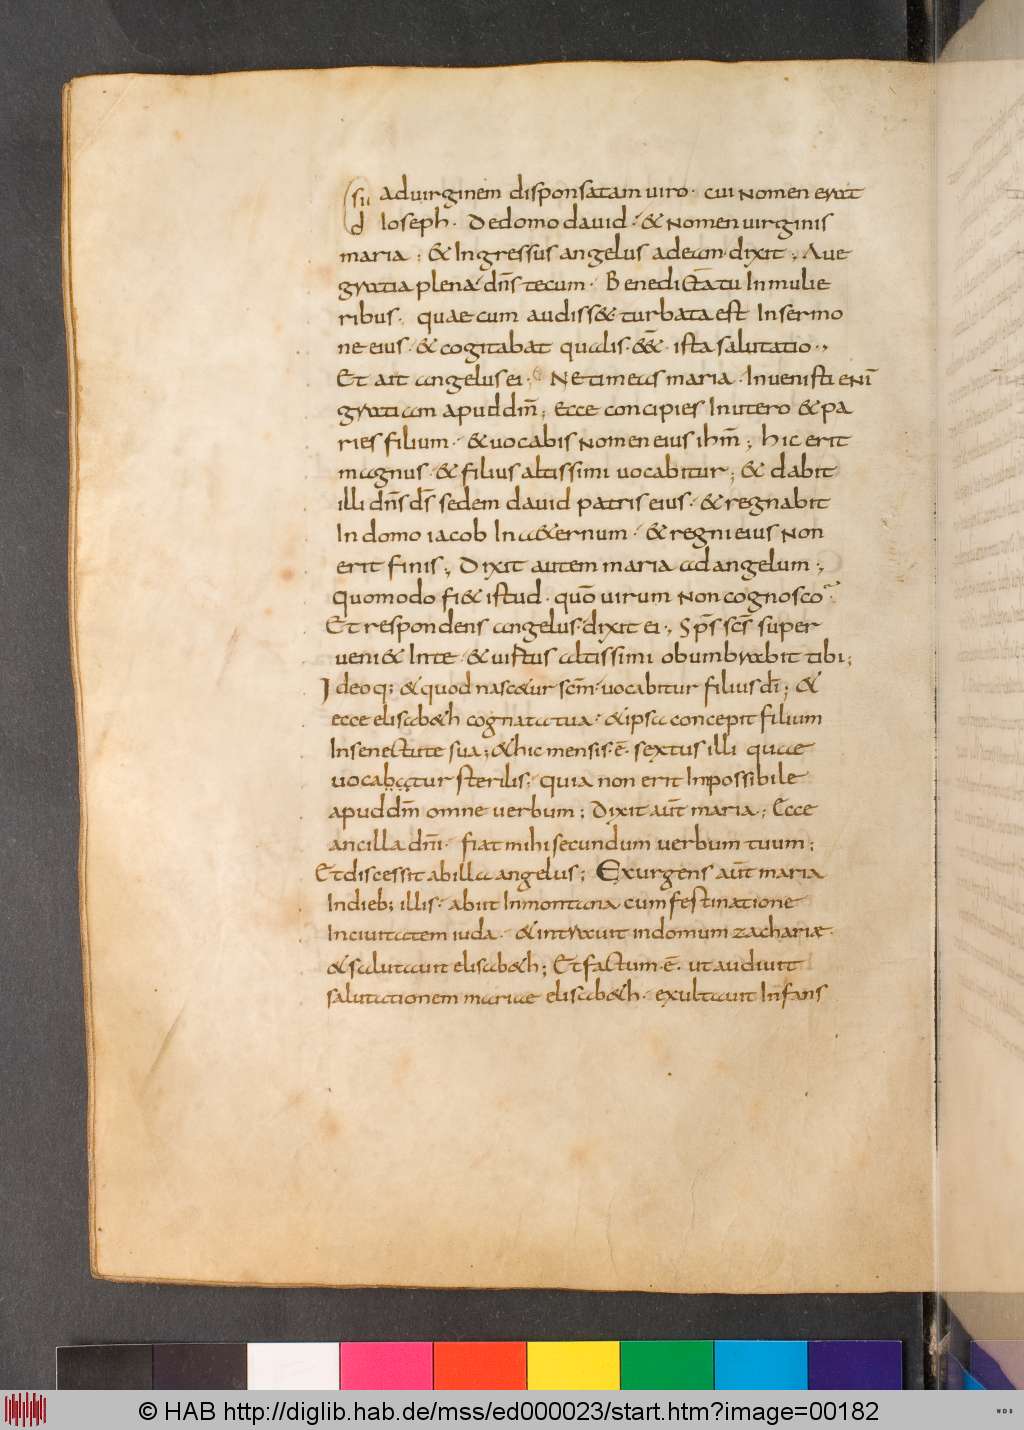 su aduirginem disponsatam uiro· cui nomen erat
d ioseph· Dedomo dauid· & nomen uirginis
maria; & Ingressus angelus adeam· dixit; Aue
gratia plena· dn̄s tecum· Benedicta tu In mulie
ribus· quae cum audiss& turbata est In sermo
ne eius· & cogitabat qualis· ēē& ista salutatio·,
Et ait angelus ei· Ne timeas maria· Inuenisti enī
gratiam apud dm̄; Ecce concipies In utero & pa
ries filium· & uocabis nomen eius ihm̄; hic erit
magnus· & filius altissimi uocabitur; & dabit
illi dn̄s ds̄ sedem dauid patris eius· & regnabit
In domo iacob In a&ernum· & regni eius non
erit finis; Dixit autem maria ad angelum;
Quomodo fi& istud· quō uirum non cognosco
Et respondens angelus· dixit ei; Sp̄s sc̄s super
ueni& In te· & uirtus altissimi obumbrabit tibi;
Ideoq; & quod nasc&ur sc̄m· uocabitur filius dī; &
ecce elisab&h cognata tua· & ipsa concepit filium
In senectute sua; & hic mensis· ē· sextus illi quae
uocabatur sterilis; quia non erit Inpossibile
apud dm̄ omne uerbum; Dixit aūt maria; Ecce
ancilla dn̄i· fiat mihi secundum uerbum tuum;
Et discessit ab illa angelus; Exurgens aūt maria
In dieb; illis· abiit In montana cum festinatione
In ciuitatem iuda· & intrauit in domum zachariæ·
& salutauit elisab&h; Et factum· ē· ut audiuit
salutationem mariae elisab&h· exultauit Infans
© HAB http://diglib.hab.de/mss/ed000023/start.htm?image=00182
WDB